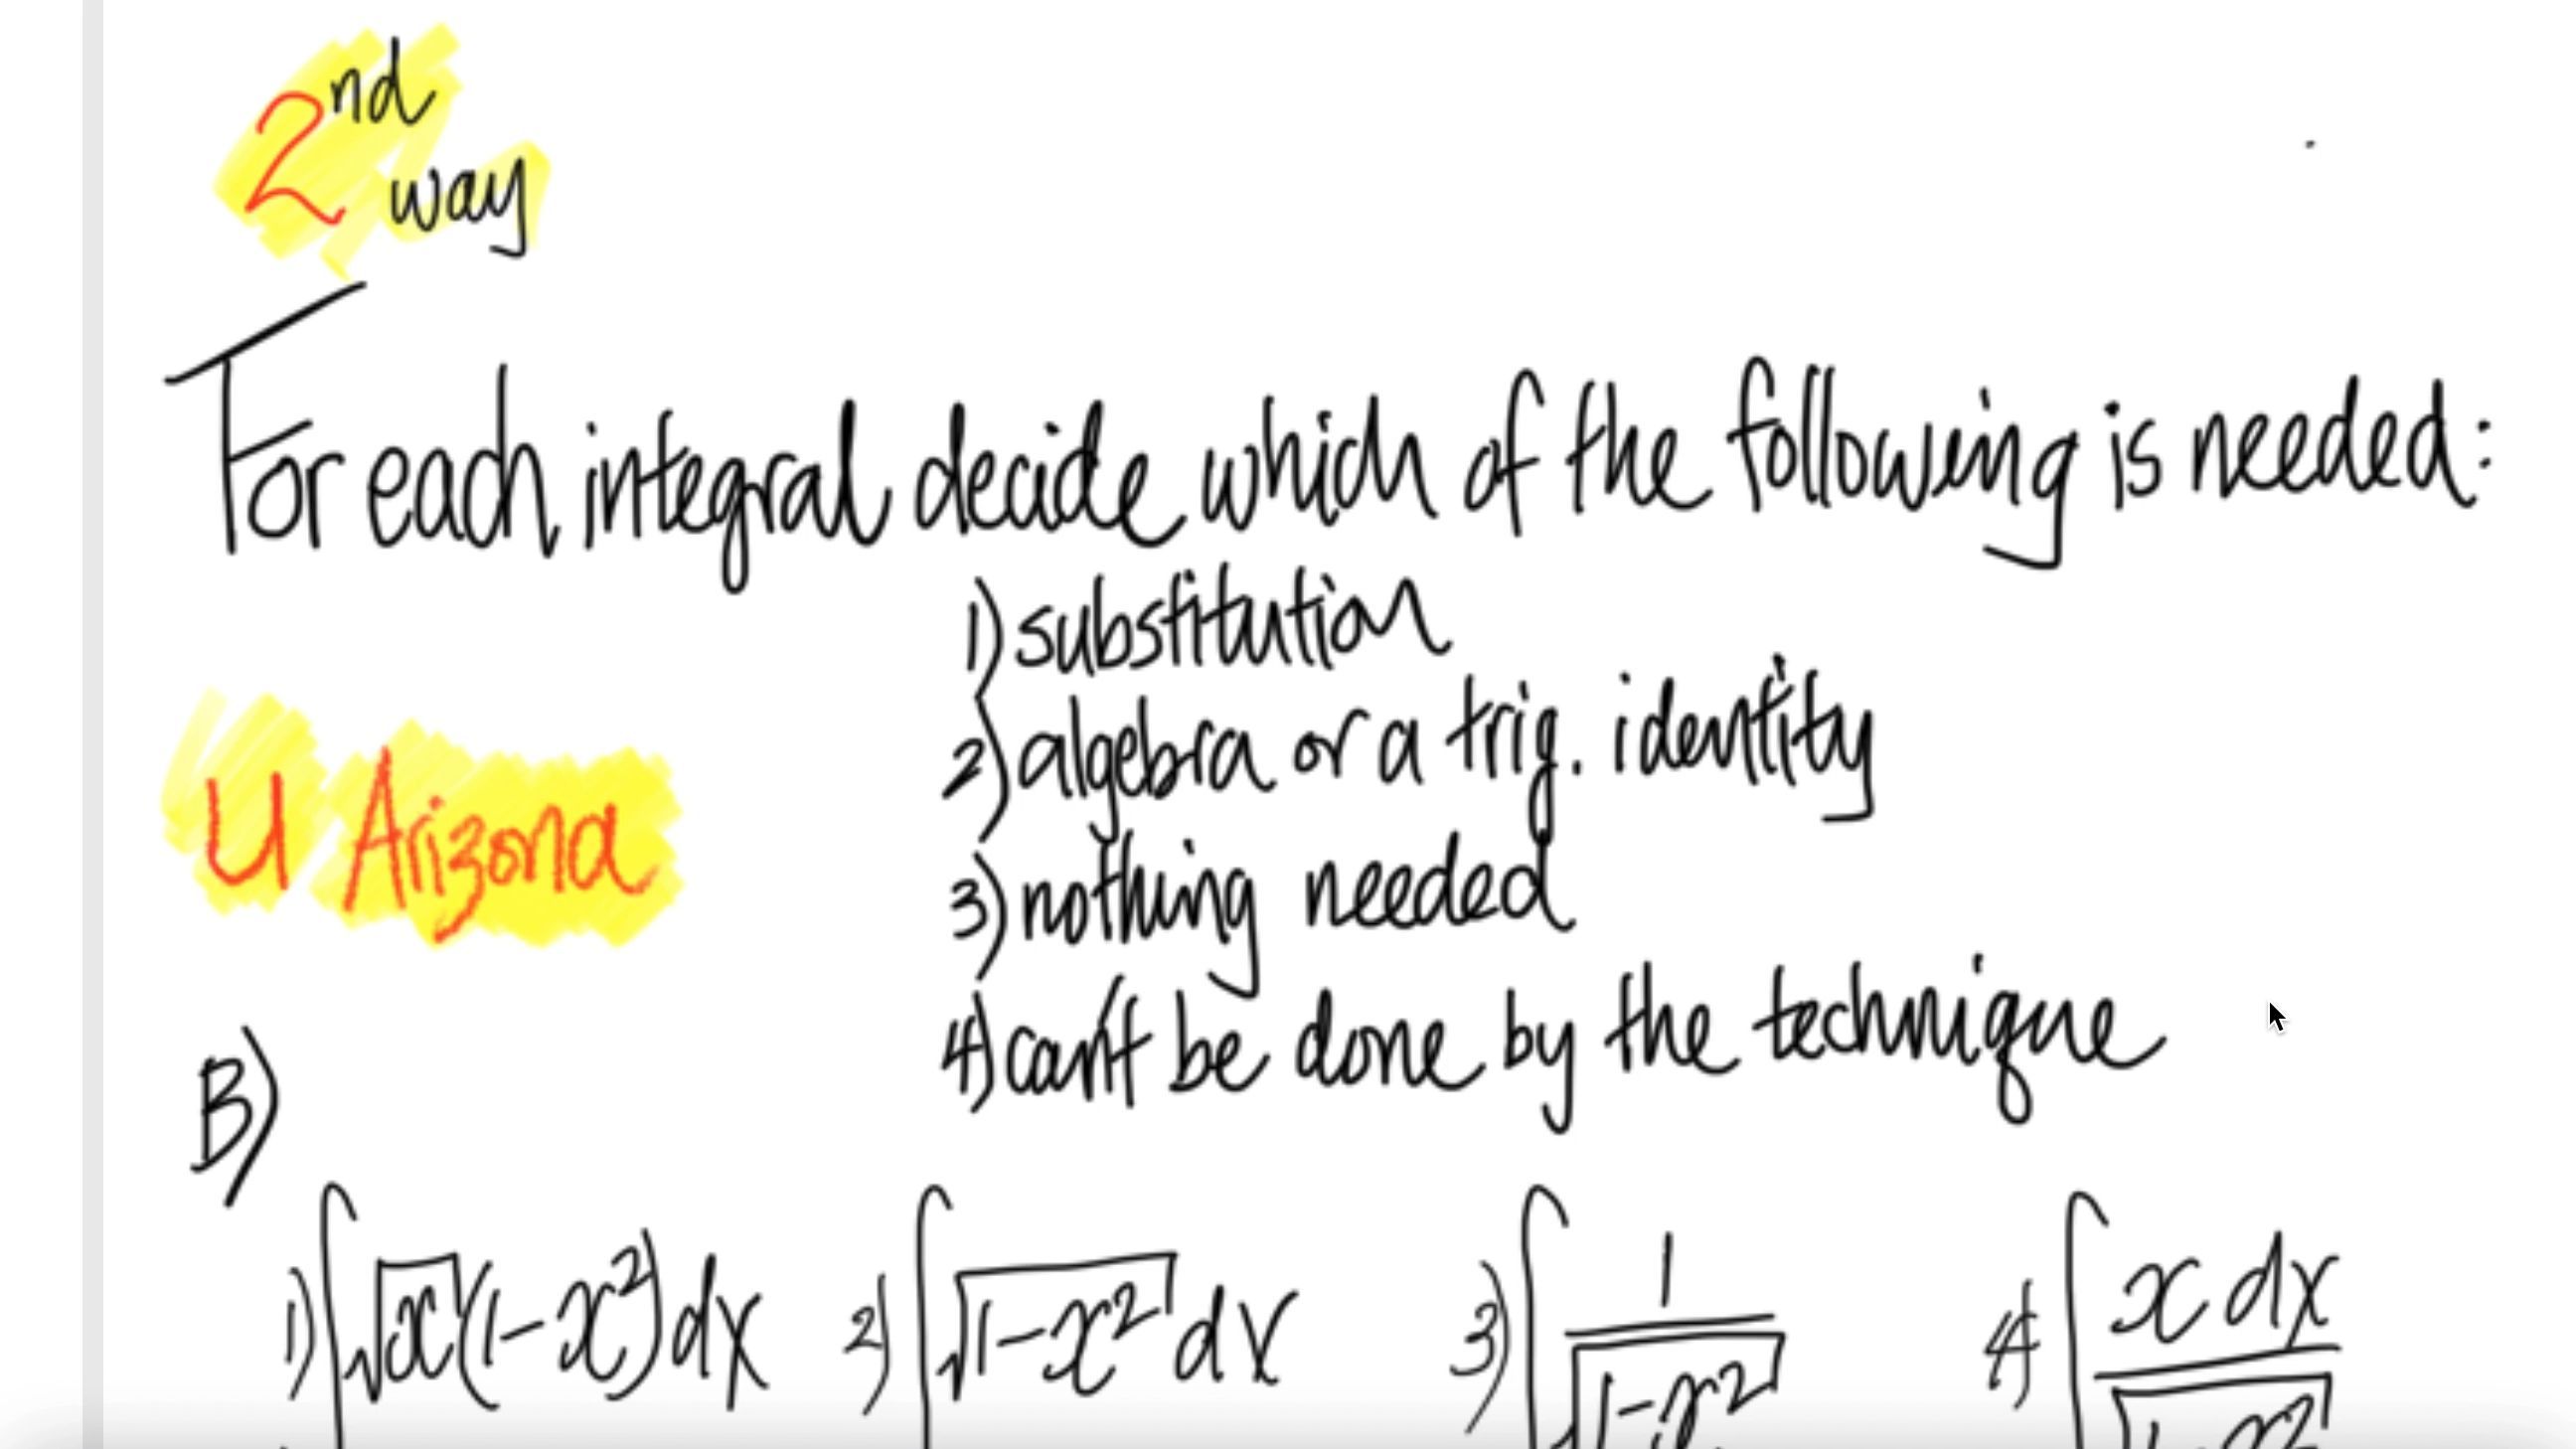 2nd
way
For each integral decide which of the following is needed:
1) substitution
2) algebra or a trig. identity
U Arizona
3) nothing needed
4) can't be done by the technique
B)
1) ∫√x(1-x²)dx 2) ∫√1-x² dx 3) ∫ 1/√1-x² 4) ∫ x dx/√1-x²